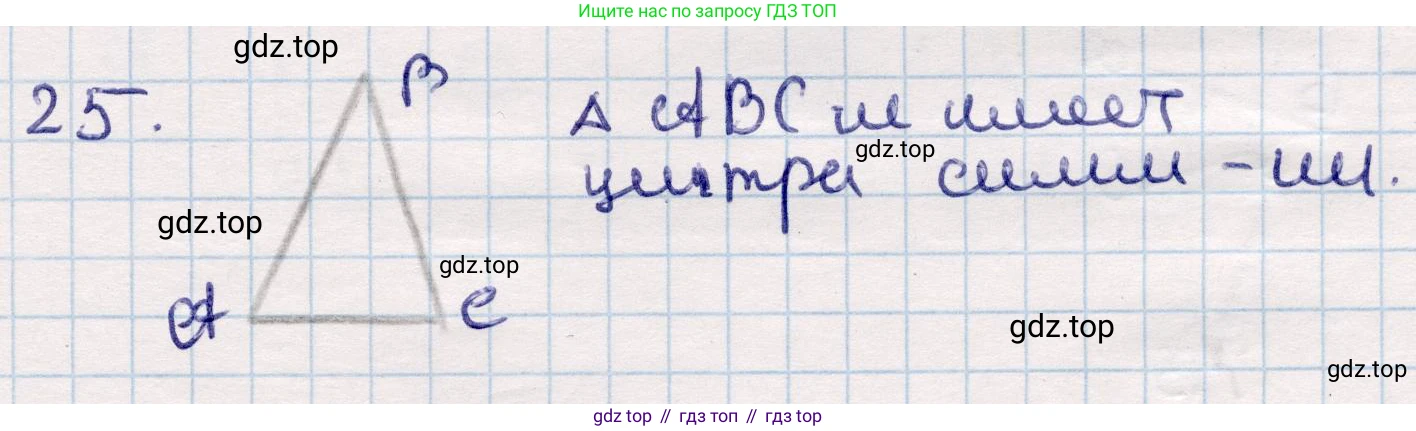 Ищите нас по запросу ГДЗ ТОП
gdz.top
25.
B
△ ABC не имеет
gdz.top
центра симм-ии.
gdz.top
gdz.top
A
C
gdz.top
gdz.top
gdz top // гдз топ // гдз top